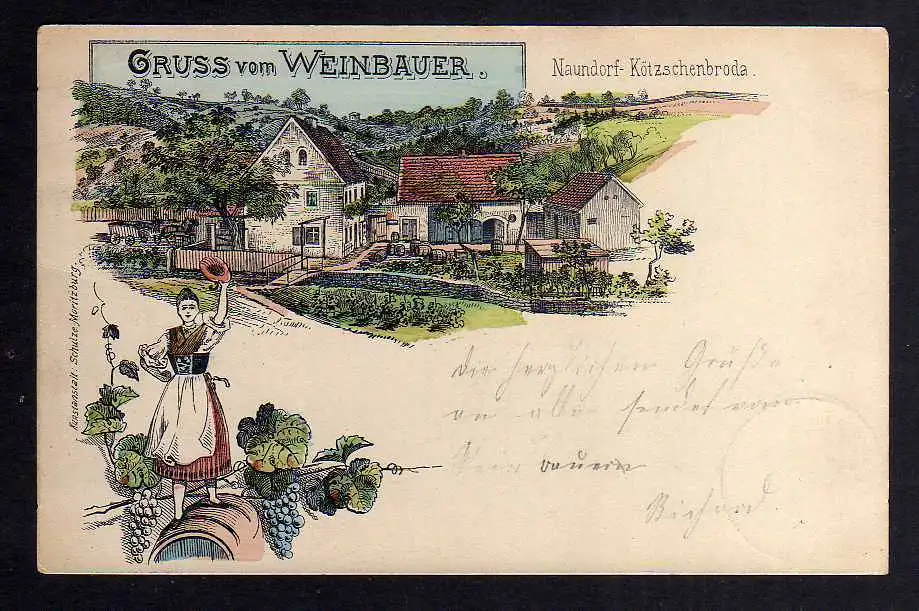 Gruss vom Weinbauer.
Naundorf-Kötzschenbroda.
Kunstanstalt: Schulze, Moritzburg.
Die herzlichen Grüße
an alle sendet vom
Wein bauern
Richard